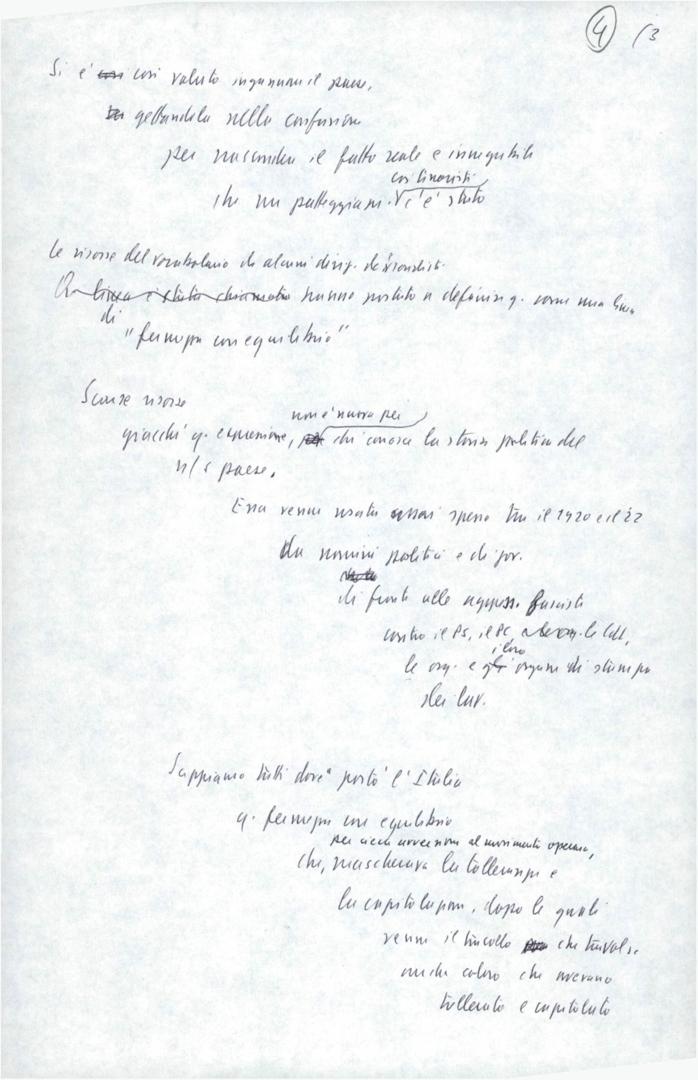 4 /3
Si è così voluto ingannare il paese,
gettandolo nella confusione
per nascondere il fatto reale e innegabile
che un patteggiam. c'è stato
coi linciaristi
Le risorse del vocabolario di alcuni dirig. democristi
hanno portato a definire q. come una linea
di
"fermezza con equilibrio"
Scarse risorse
non è nuova per
giacché q. espressione, chi conosce la storia politica del
n/s paese.
Essa venne usata assai spesso tra il 1920 e il '22
da uomini politici e di gov.
di fronte alle aggress. fasciste
contro il PS, il PC, le CdL,
i loro
le org. e organi di stampa
dei lav.
Sappiamo tutti dove portò l'Italia
q. fermezza con equilibrio
per cieca avversione al movimento operaio,
che, mascherava la tolleranza e
la capitolazione, dopo le quali
venne il tracollo che travolse
anche coloro che avevano
tollerato e capitolato